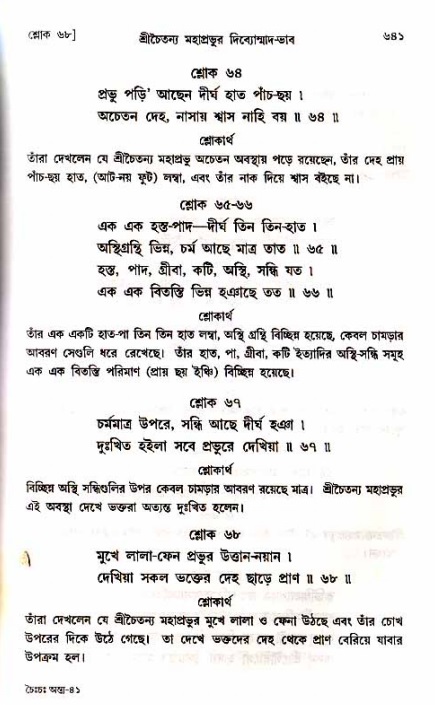 শ্লোক ৬৮]
শ্রীচৈতন্য মহাপ্রভুর দিব্যোন্মাদ-ভাব
৬৪১
শ্লোক ৬৪
প্রভু পড়ি' আছেন দীর্ঘ হাত পাঁচ-ছয় ।
অচেতন দেহ, নাসায় শ্বাস নাহি বয় ॥ ৬৪ ॥
শ্লোকার্থ
তাঁরা দেখলেন যে শ্রীচৈতন্য মহাপ্রভু অচেতন অবস্থায় পড়ে রয়েছেন, তাঁর দেহ প্রায়
পাঁচ-ছয় হাত, (আট-নয় ফুট) লম্বা, এবং তাঁর নাক দিয়ে শ্বাস বইছে না।
শ্লোক ৬৫-৬৬
এক এক হস্ত-পাদ—দীর্ঘ তিন তিন-হাত ।
অস্থিগ্রন্থি ভিন্ন, চর্ম আছে মাত্র তাত ॥ ৬৫ ॥
হস্ত, পাদ, গ্রীবা, কটি, অস্থি, সন্ধি যত ।
এক এক বিতস্তি ভিন্ন হঞাছে তত ॥ ৬৬ ॥
শ্লোকার্থ
তাঁর এক একটি হাত-পা তিন তিন হাত লম্বা, অস্থি গ্রন্থি বিচ্ছিন্ন হয়েছে, কেবল চামড়ার
আবরণ সেগুলি ধরে রেখেছে। তাঁর হাত, পা, গ্রীবা, কটি ইত্যাদির অস্থি-সন্ধি সমূহ
এক এক বিতস্তি পরিমাণ (প্রায় ছয় ইঞ্চি) বিচ্ছিন্ন হয়েছে।
শ্লোক ৬৭
চর্মমাত্র উপরে, সন্ধি আছে দীর্ঘ হঞা ।
দুঃখিত হইলা সবে প্রভুরে দেখিয়া ॥ ৬৭ ॥
শ্লোকার্থ
বিচ্ছিন্ন অস্থি সন্ধিগুলির উপর কেবল চামড়ার আবরণ রয়েছে মাত্র। শ্রীচৈতন্য মহাপ্রভুর
এই অবস্থা দেখে ভক্তরা অত্যন্ত দুঃখিত হলেন।
শ্লোক ৬৮
মুখে লালা-ফেন প্রভুর উত্তান-নয়ান ।
দেখিয়া সকল ভক্তের দেহ ছাড়ে প্রাণ ॥ ৬৮ ॥
শ্লোকার্থ
তাঁরা দেখলেন যে শ্রীচৈতন্য মহাপ্রভুর মুখে লালা ও ফেনা উঠছে এবং তাঁর চোখ
উপরের দিকে উঠে গেছে। তা দেখে ভক্তদের দেহ থেকে প্রাণ বেরিয়ে যাবার
উপক্রম হল।
চৈঃচঃ অন্ত্য-৪১